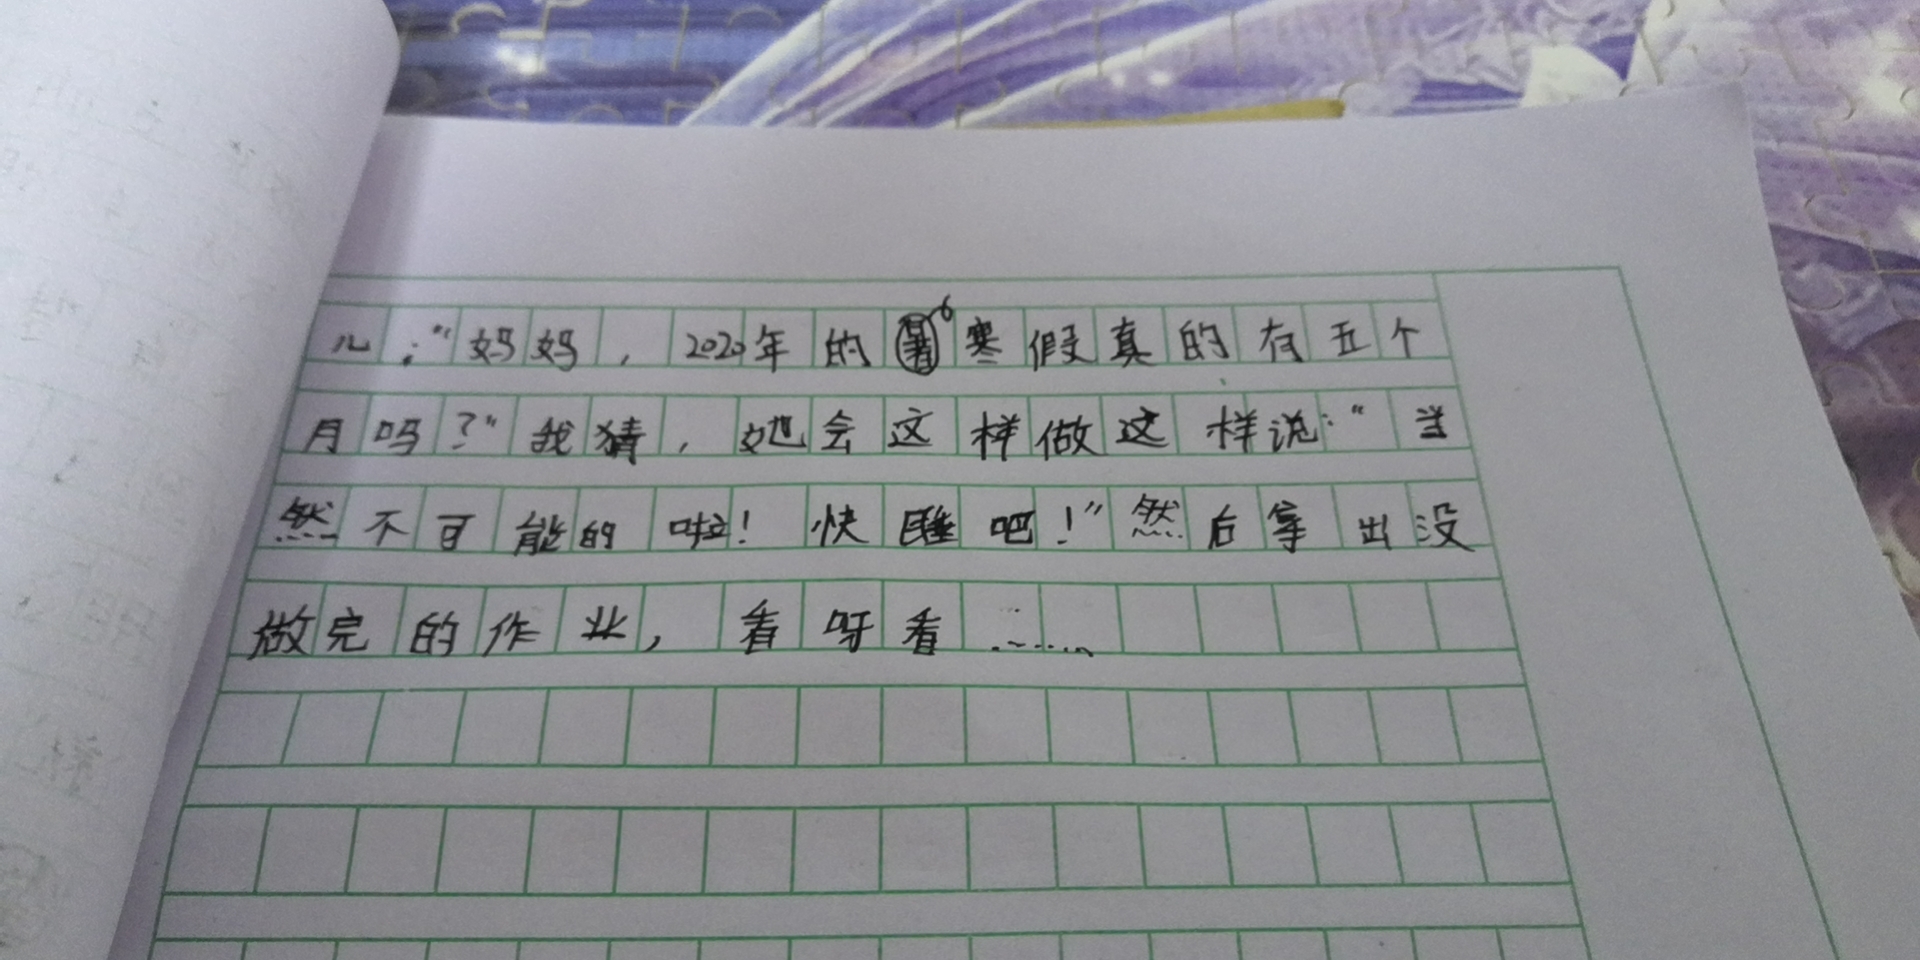 儿:“妈妈，2020年的寒假真的有五个
月吗?”我猜，她会这样做这样说:“当
然不可能的啦!快睡吧!”然后拿出没
做完的作业，看呀看……